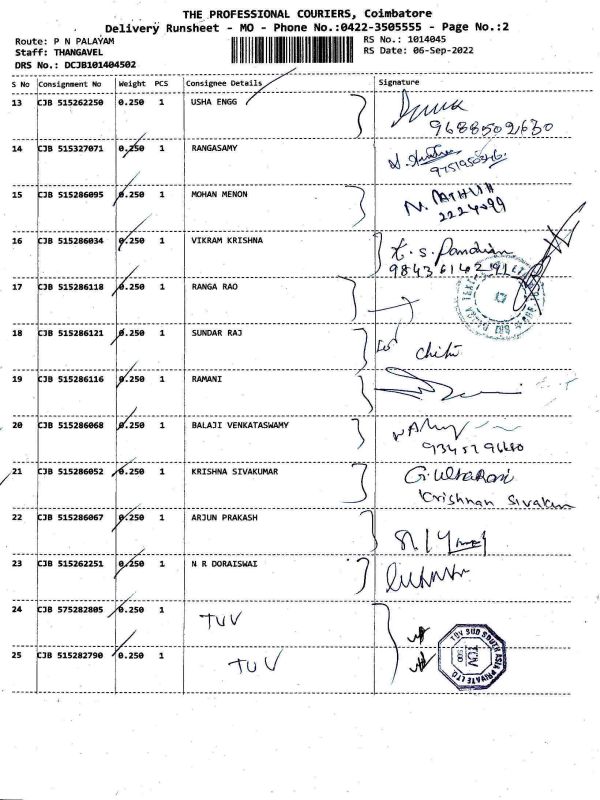 THE PROFESSIONAL COURIERS, Coimbatore
Delivery Runsheet - MO - Phone No.:0422-3505555 - Page No.:2
Route: P N PALAYAM
RS No.: 1014045
Staff: THANGAVEL
RS Date: 06-Sep-2022
DRS No.: DCJB101404502
S No Consignment No Weight PCS Consignee Details Signature
13 CJB 515262250 0.250 1 USHA ENGG
9688502630
14 CJB 515327071 0.250 1 RANGASAMY
15 CJB 515286095 0.250 1 MOHAN MENON
16 CJB 515286034 0.250 1 VIKRAM KRISHNA
17 CJB 515286118 0.250 1 RANGA RAO
18 CJB 515286121 0.250 1 SUNDAR RAJ
19 CJB 515286116 0.250 1 RAMANI
20 CJB 515286068 0.250 1 BALAJI VENKATASWAMY
21 CJB 515286052 0.250 1 KRISHNA SIVAKUMAR
22 CJB 515286067 0.250 1 ARJUN PRAKASH
23 CJB 515262251 0.250 1 N R DORAISWAI
24 CJB 575282805 0.250 1 TUV
25 CJB 515282790 0.250 1 TUV
TÜV SUD SOUTH ASIA PRIVATE LTD.